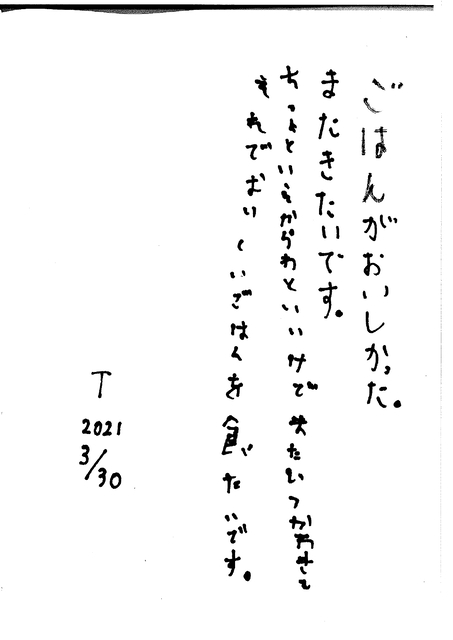 ごはんがおいしかった。
またきたいです。
ちょっといえからわといいけで またいつかわきて
それでおいしいごはんを食べたいです。
T
2021
3/30